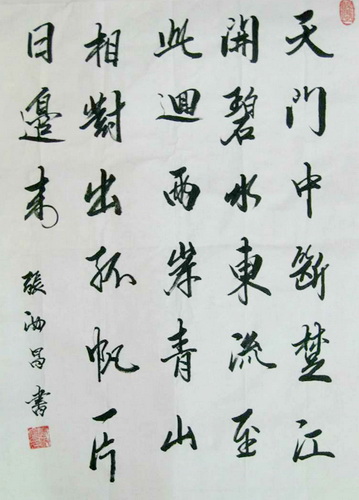 天門中斷楚江
開碧水東流至
此迴兩岸青山
相對出孤帆一片
日邊來
張汝昌書